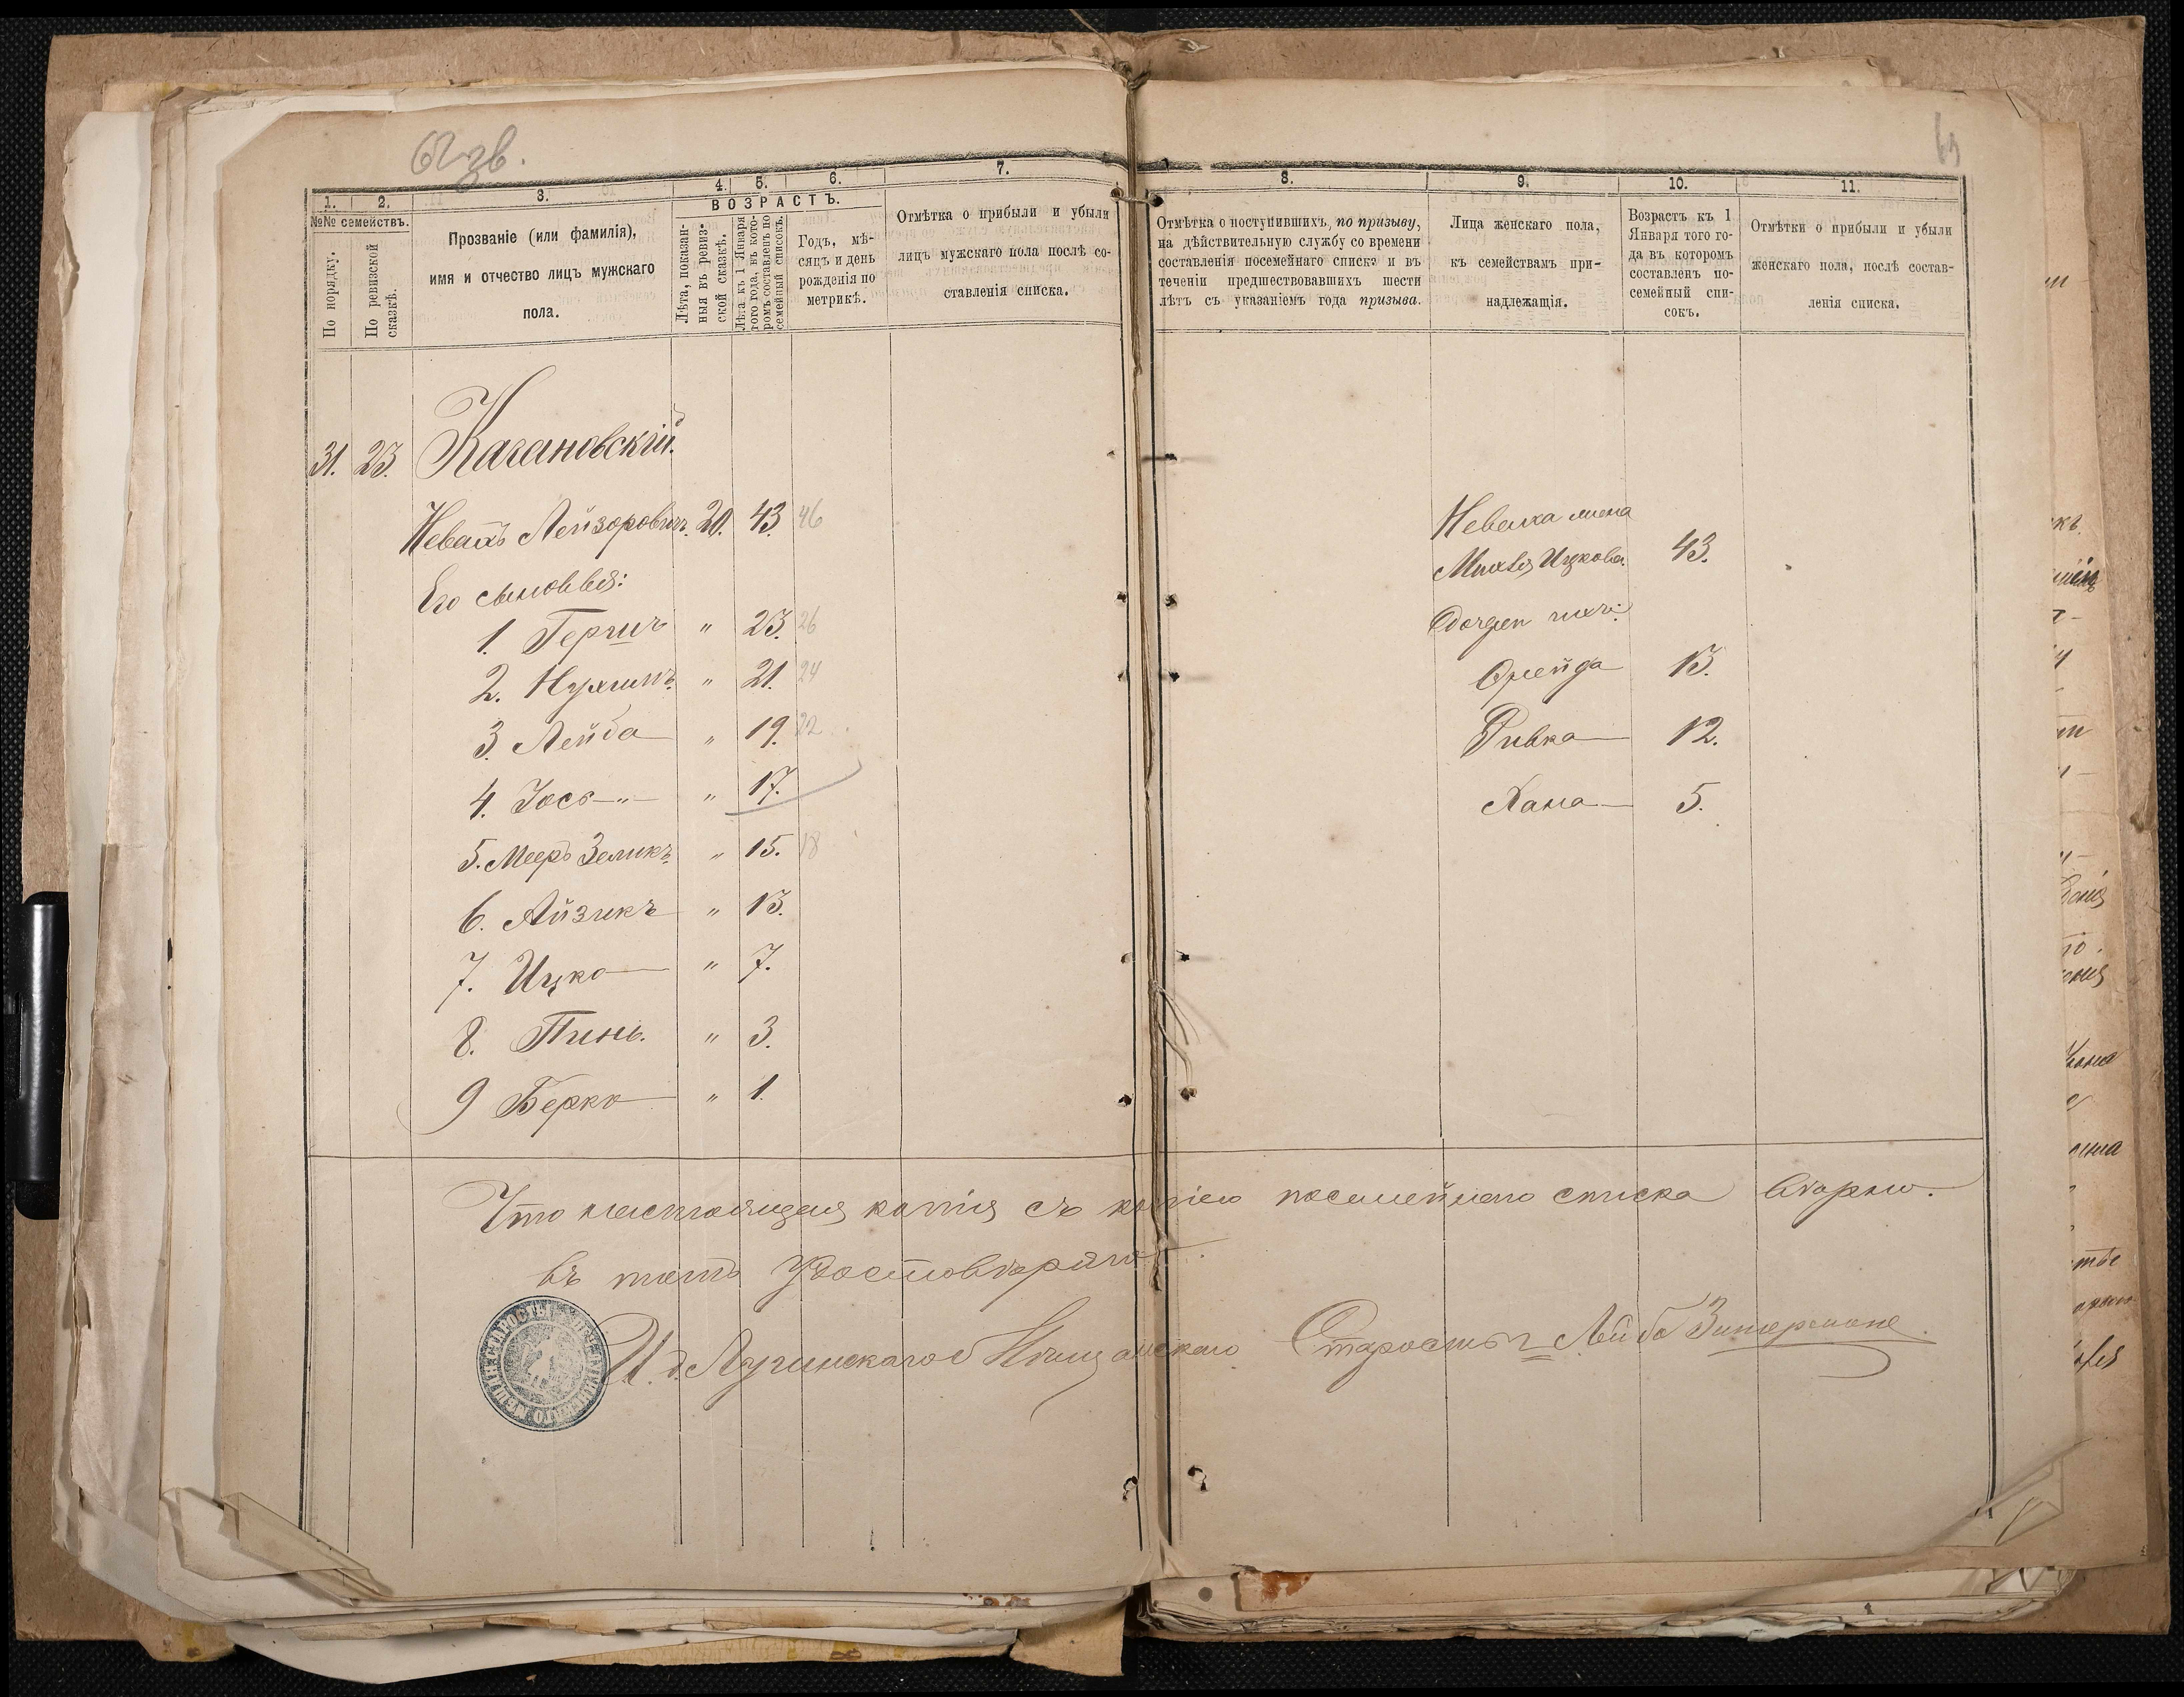 62 зв.
63
1. 2. 3. 4. 5. 6. 7.
№№ семействъ.
По порядку.
По ревизской сказкѣ.
Прозваніе (или фамилія),
имя и отчество лицъ мужскаго
пола.
ВОЗРАСТЪ.
Лѣта, показан-
ныя въ ревиз-
ской сказкѣ.
Лѣта къ 1 Января
того года, въ кото-
ромъ составленъ по
семейный списокъ.
Годъ, мѣ-
сяцъ и день
рожденія по
метрикѣ.
Отмѣтка о прибыли и убыли
лицъ мужскаго пола послѣ со-
ставленія списка.
8. 9. 10. 11.
Отмѣтка о поступившихъ, по призыву,
на дѣйствительную службу со времени
составленія посемейнаго списка и въ
теченіи предшествовавшихъ шести
лѣтъ съ указаніемъ года призыва.
Лица женскаго пола,
къ семействамъ при-
надлежащія.
Возрастъ къ 1
Января того го-
да въ которомъ
составленъ по-
семейный спи-
сокъ.
Отмѣтки о прибыли и убыли
женскаго пола, послѣ состав-
ленія списка.
31. 23. Качановскій.
Невахъ Лейзоровичъ. 20. 43. 46
Его сыновья:
1. Гершъ " 23. 26
2. Нухимъ " 21. 24
3. Лейба " 19. 22
4. Іось " 17.
5. Мееръ Зеликъ " 15. 18
6. Айзикъ " 13.
7. Ицко " 7.
8. Пинь. " 3.
9 Берко " 1.
Неваха жена
Ицкова. 43.
Дочери ихъ:
Фрейда 13.
Ривка 12.
Хана 5.
Что настоящая копія съ копіею посемейнаго списка вѣрно.
въ томъ удостовѣряю.
И. д. Лугинскаго Мѣщанскаго Старосты Лейба